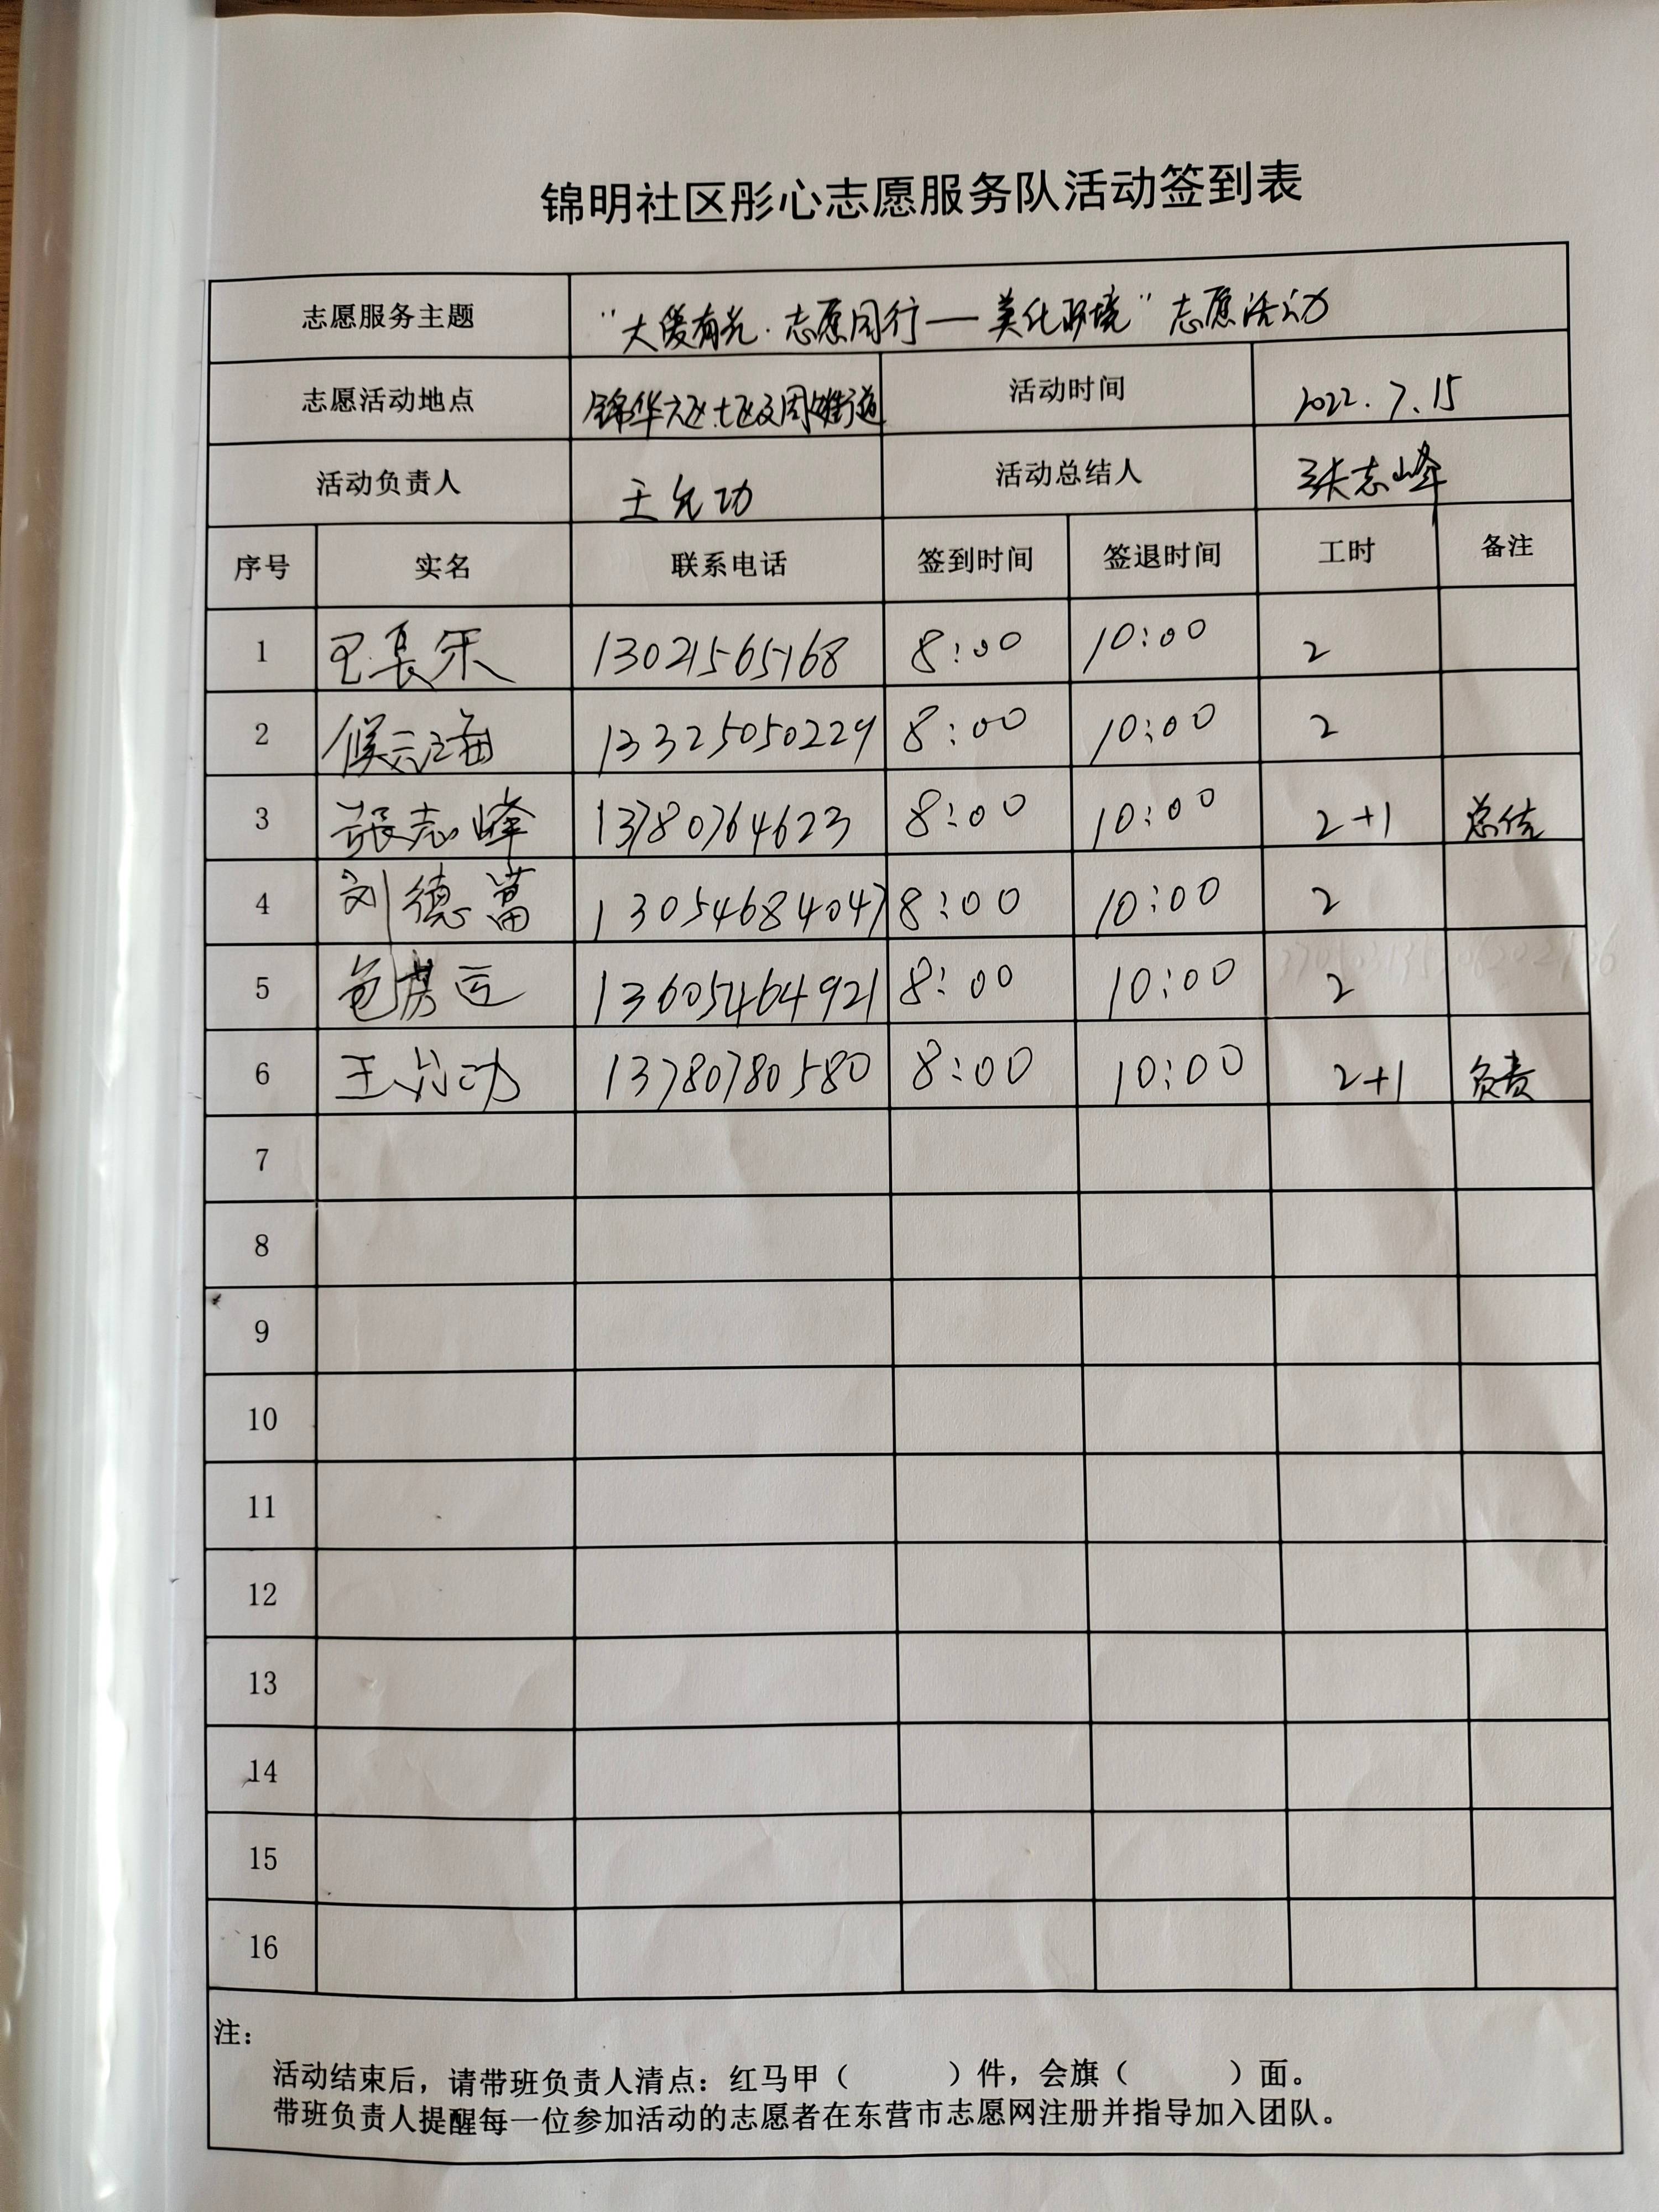 锦明社区彤心志愿服务队活动签到表
志愿服务主题 "大爱有光·志愿同行——美化环境"志愿活动
志愿活动地点 锦华六区七区及周边街道 活动时间 2022.7.15
活动负责人 王允功 活动总结人 张志峰
序号 实名 联系电话 签到时间 签退时间 工时 备注
1 13021565168 8:00 10:00 2
2 侯云海 13325050229 8:00 10:00 2
3 张志峰 13780764623 8:00 10:00 2+1 总结
4 刘德富 13054684047 8:00 10:00 2
5 13605464921 8:00 10:00 2
6 王允功 13780780580 8:00 10:00 2+1 负责
7
8
9
10
11
12
13
14
15
16
注:
活动结束后,请带班负责人清点:红马甲( )件,会旗( )面。
带班负责人提醒每一位参加活动的志愿者在东营市志愿网注册并指导加入团队。